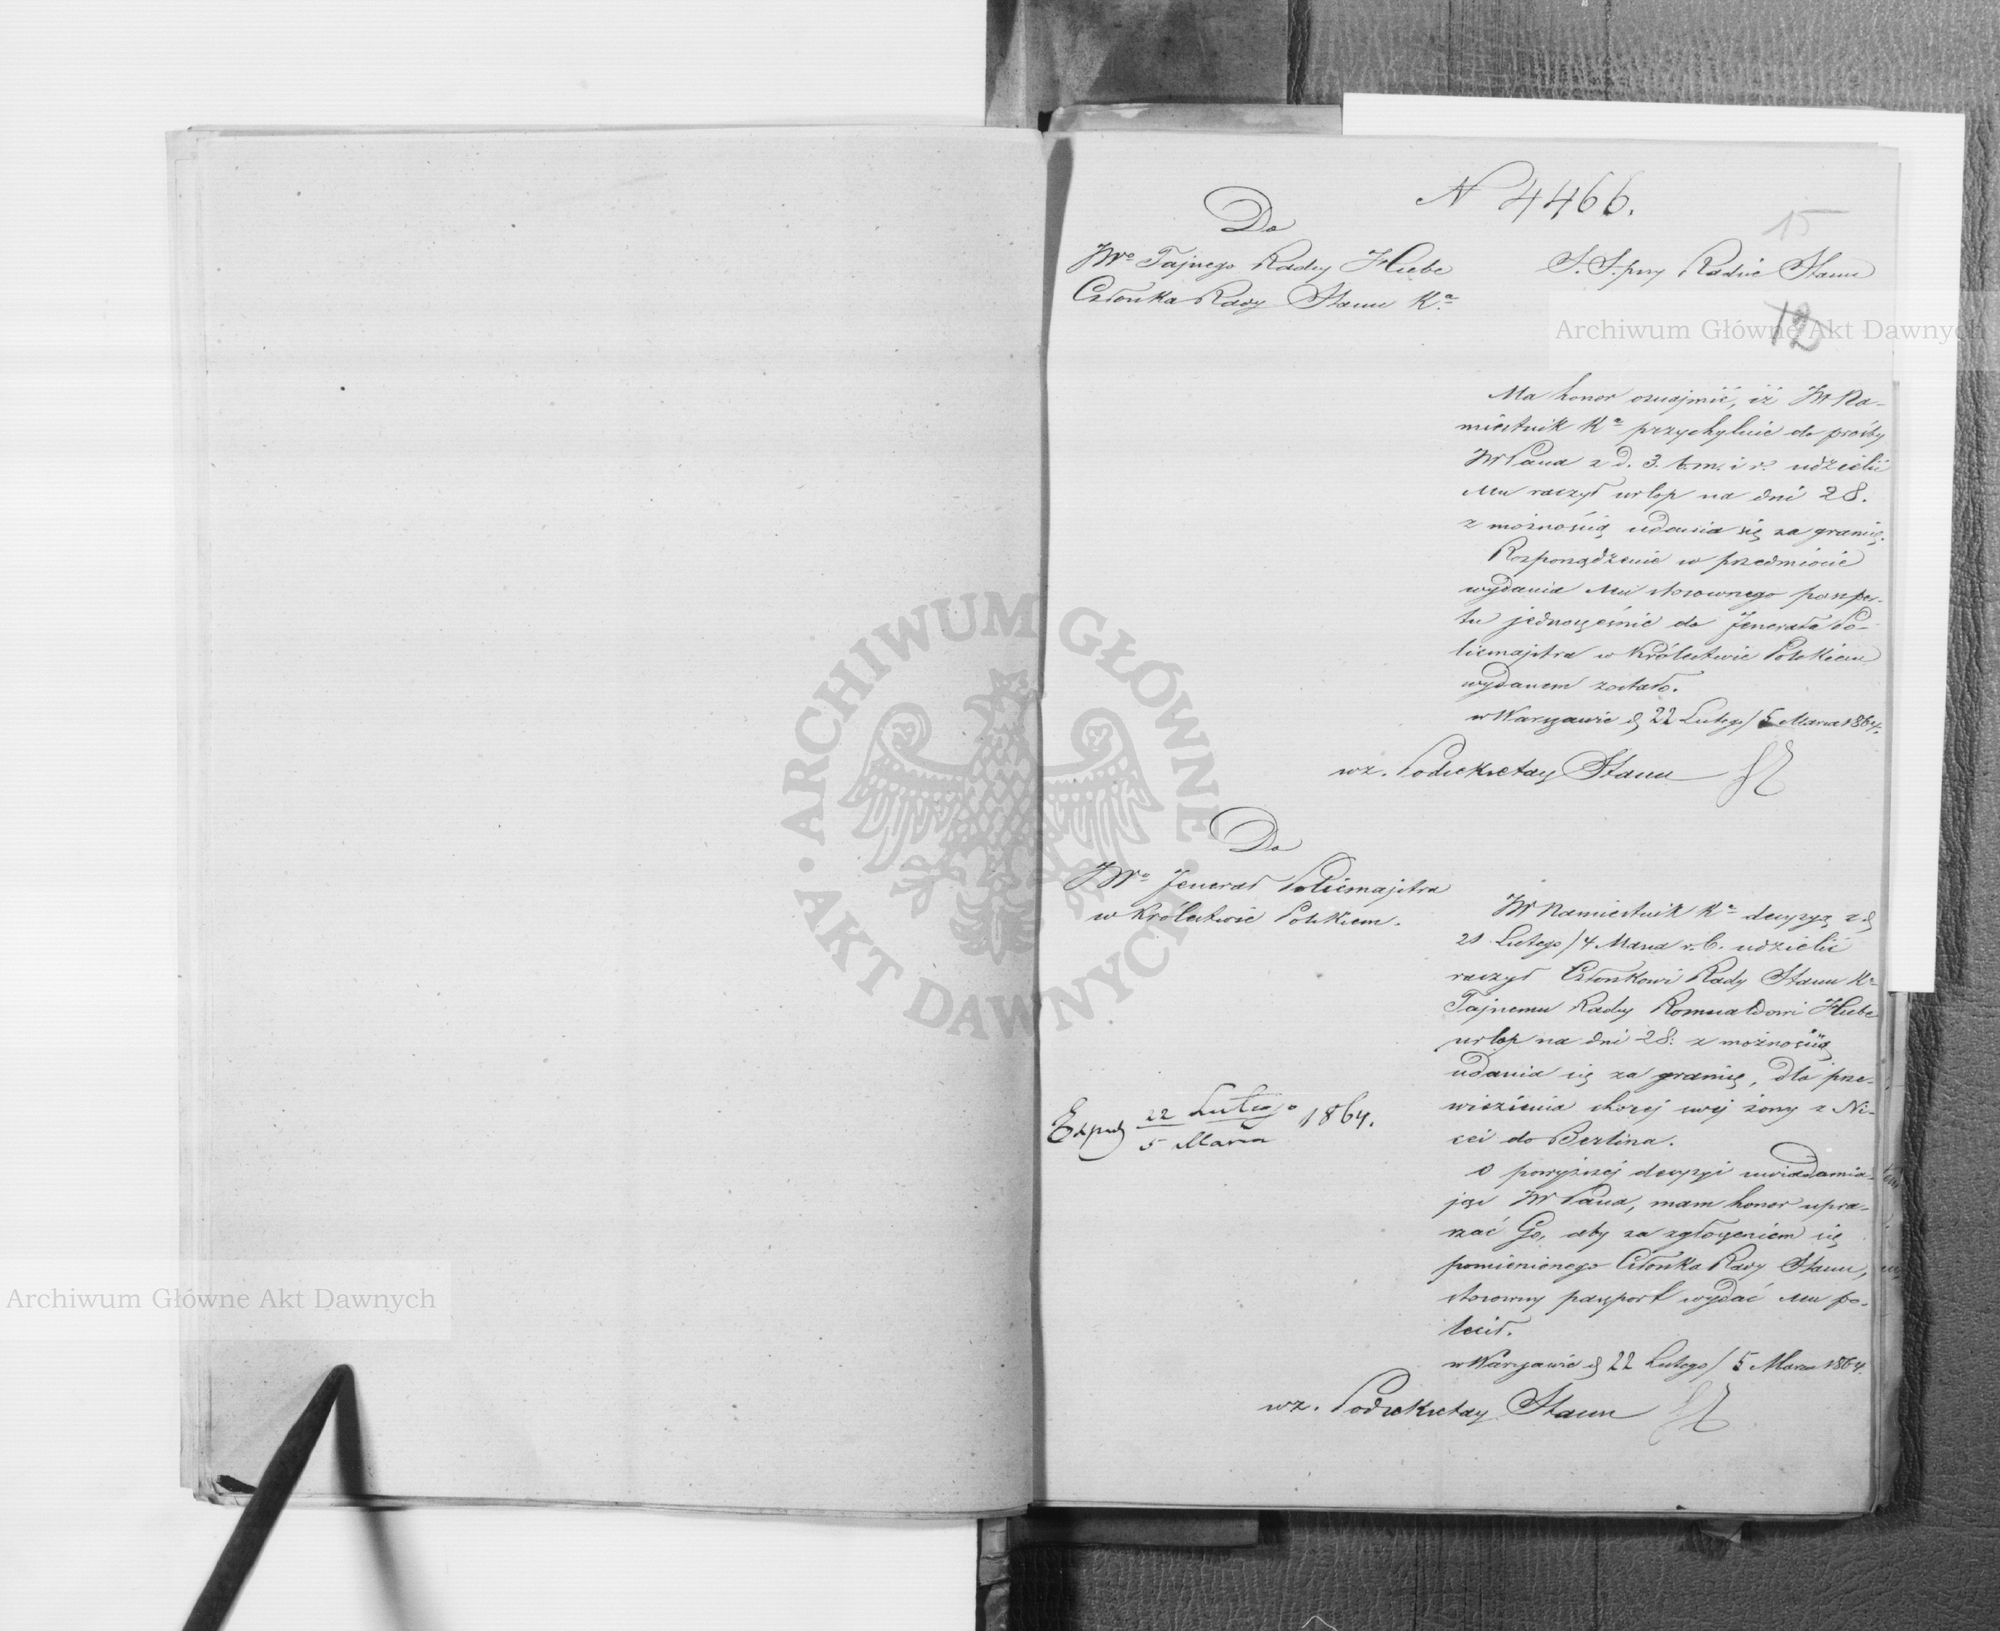 N 4466.
15
Do
JWo Tajnego Radcy Hube
Członka Rady Stanu Ka
S. S. przy Radzie Stanu
12
Ma honor oznajmić, iż JW Na-
miestnik Ka przychylnie do prośby
JW Pana z d. 3. b.m. i r. udzielić
Mu raczył urlop na dni 28.
z możnością udania się za granicę.
Rozporządzenie w przedmiocie
wydania Mu stosownego paszpor-
tu jednocześnie do Jenerała Po-
licmajstra w Królestwie Polskiem
wydanem zostało.
w Warszawie d 22 Lutego / 5 Marca 1864.
wz. Podsekretarz Stanu
Do
JWo Jenerał Policmajstra
w Królestwie Polskiem.
JW Namiestnik Ka decyzyą z d
21 Lutego / 4 Marca r. b. udzielić
raczył Członkowi Rady Stanu Ka
Tajnemu Radcy Romualdowi Hube
urlop na dni 28. z możnością
udania się za granicę, dla prze-
wiezienia chorej swej żony z Ni-
cei do Berlina.
O powyższej decyzyi uwiadamia-
jąc JW Pana, mam honor upra-
szać Go, aby za zgłoszeniem się
pomienionego Członka Rady Stanu,
stosowny paszport wydać Mu po-
lecił.
w Warszawie d 22 Lutego / 5 Marca 1864.
wz. Podsekretarz Stanu
Exped 22 Lutego / 5 Marca 1864.
Archiwum Główne Akt Dawnych
Archiwum Główne Akt Dawnych
ARCHIWUM GŁÓWNE · AKT DAWNYCH ·